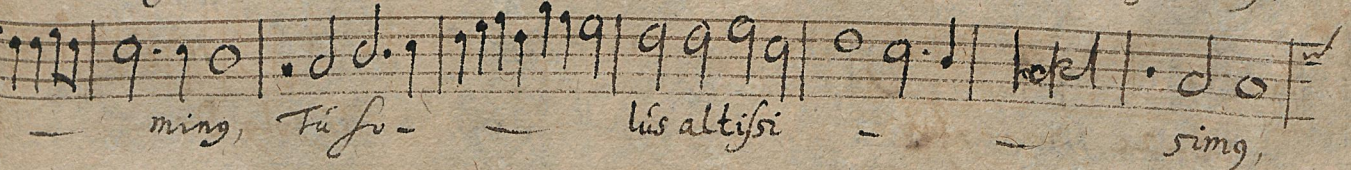 — minꝯ, Tú so- — lús altissi - — simꝯ,